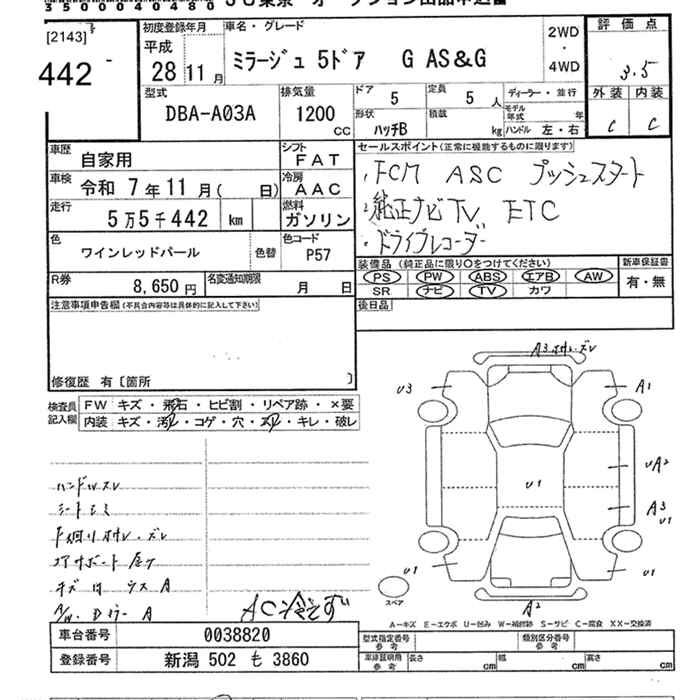 35000040480 JU東京 オークション出品申込書
[2143]
442
初度登録年月
平成
28年11月
車名・グレード
ミラージュ 5ドア G AS&G
2WD
・
4WD
評価点
3.5
外装 内装
C C
型式
DBA-A03A
排気量
1200
CC
ドア 5
定員 5 人
形状 ハッチB
積載 kg
ディーラー・並行
モデル年式 年
ハンドル 左・右
車歴 自家用
シフト FAT
車検 令和 7年11月( 日)
冷房 AAC
走行 5万5千442 km
燃料 ガソリン
色 ワインレッドパール
色替
色コード P57
R券 8,650円
名変通知期限 月 日
セールスポイント(正常に機能するものに限ります)
・FCM ASC プッシュスタート
・純正ナビTV ETC
・ドライブレコーダー
装備品(純正品に限り○をつけてください)
PS PW ABS エアB AW
SR ナビ TV カワ
新車保証書
有・無
後日品
注意事項申告欄(不具合内容等は具体的に記入して下さい)
修復歴 有〔箇所 〕
検査員記入欄
FW キズ・飛石・ヒビ割・リペア跡・×要
内装 キズ・汚レ・コゲ・穴・スレ・キレ・破レ
ハンドルスレ
シートシミ
下廻りサビ・ズレ
コアサポート
A/W. Dミラー A
AC冷えず
A3
U3
A1
U1
UA2
A3
U1
U1
U1
A2
スペア
A-キズ E-エクボ U-凹み W-補修跡 S-サビ C-腐食 XX-交換済
車台番号 0038820
登録番号 新潟 502 も 3860
型式指定番号
参考
類別区分番号
参考
車庫証明用
参考
長さ cm
幅 cm
高さ cm